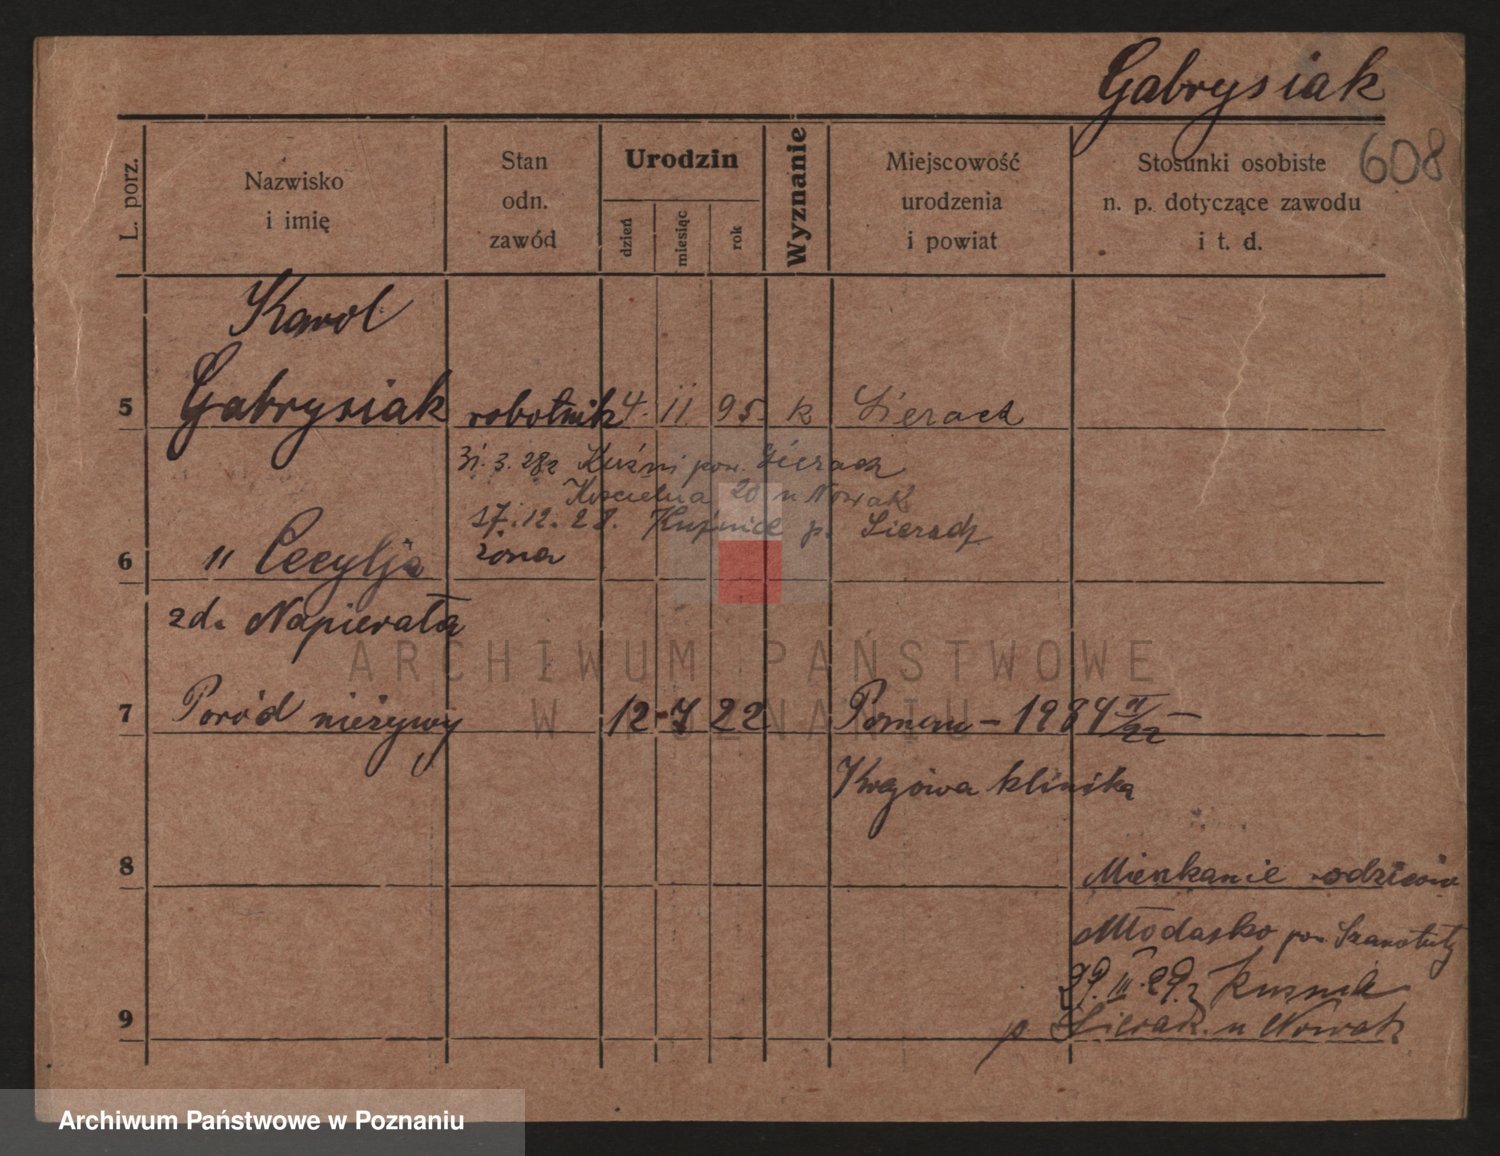 Gabrysiak
608
L. porz.
Nazwisko
i imię
Stan
odn.
zawód
Urodzin
dzień
miesiąc
rok
Wyznanie
Miejscowość
urodzenia
i powiat
Stosunki osobiste
n. p. dotyczące zawodu
i t. d.
Karol
5 Gabrysiak robotnik 4. 11 95. k Sierach
31. 3. 28 z Kuźni pow. Sierach
Kościelna 20 u Nowak
17. 12. 28. Kuźnice p. Sieradz
6 " Cecylja żona
zd. Napierała
7 Poród nieżywy 12-7 22 - 1984 II/22 -
Krajowa klinika
8 Mieszkanie rodziców
Młodasko pow. Szamotuły
29. III. 29. z
9 p. Sierak. u Nowak
ARCHIWUM PAŃSTWOWE
W POZNANIU
Archiwum Państwowe w Poznaniu